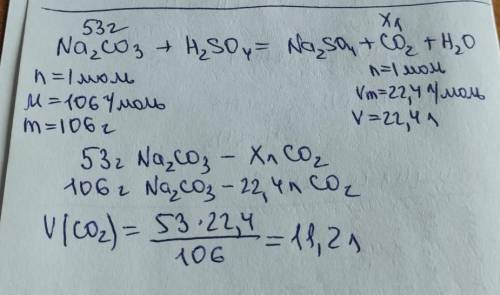 53г Xл
Na₂CO₃ + H₂SO₄ = Na₂SO₄ + CO₂ + H₂O
n = 1 моль n = 1 моль
M = 106 г/моль Vm = 22,4 л/моль
m = 106 г V = 22,4 л
53г Na₂CO₃ – Xл CO₂
106г Na₂CO₃ – 22,4л CO₂
V(CO₂) = 53·22,4 / 106 = 11,2 л